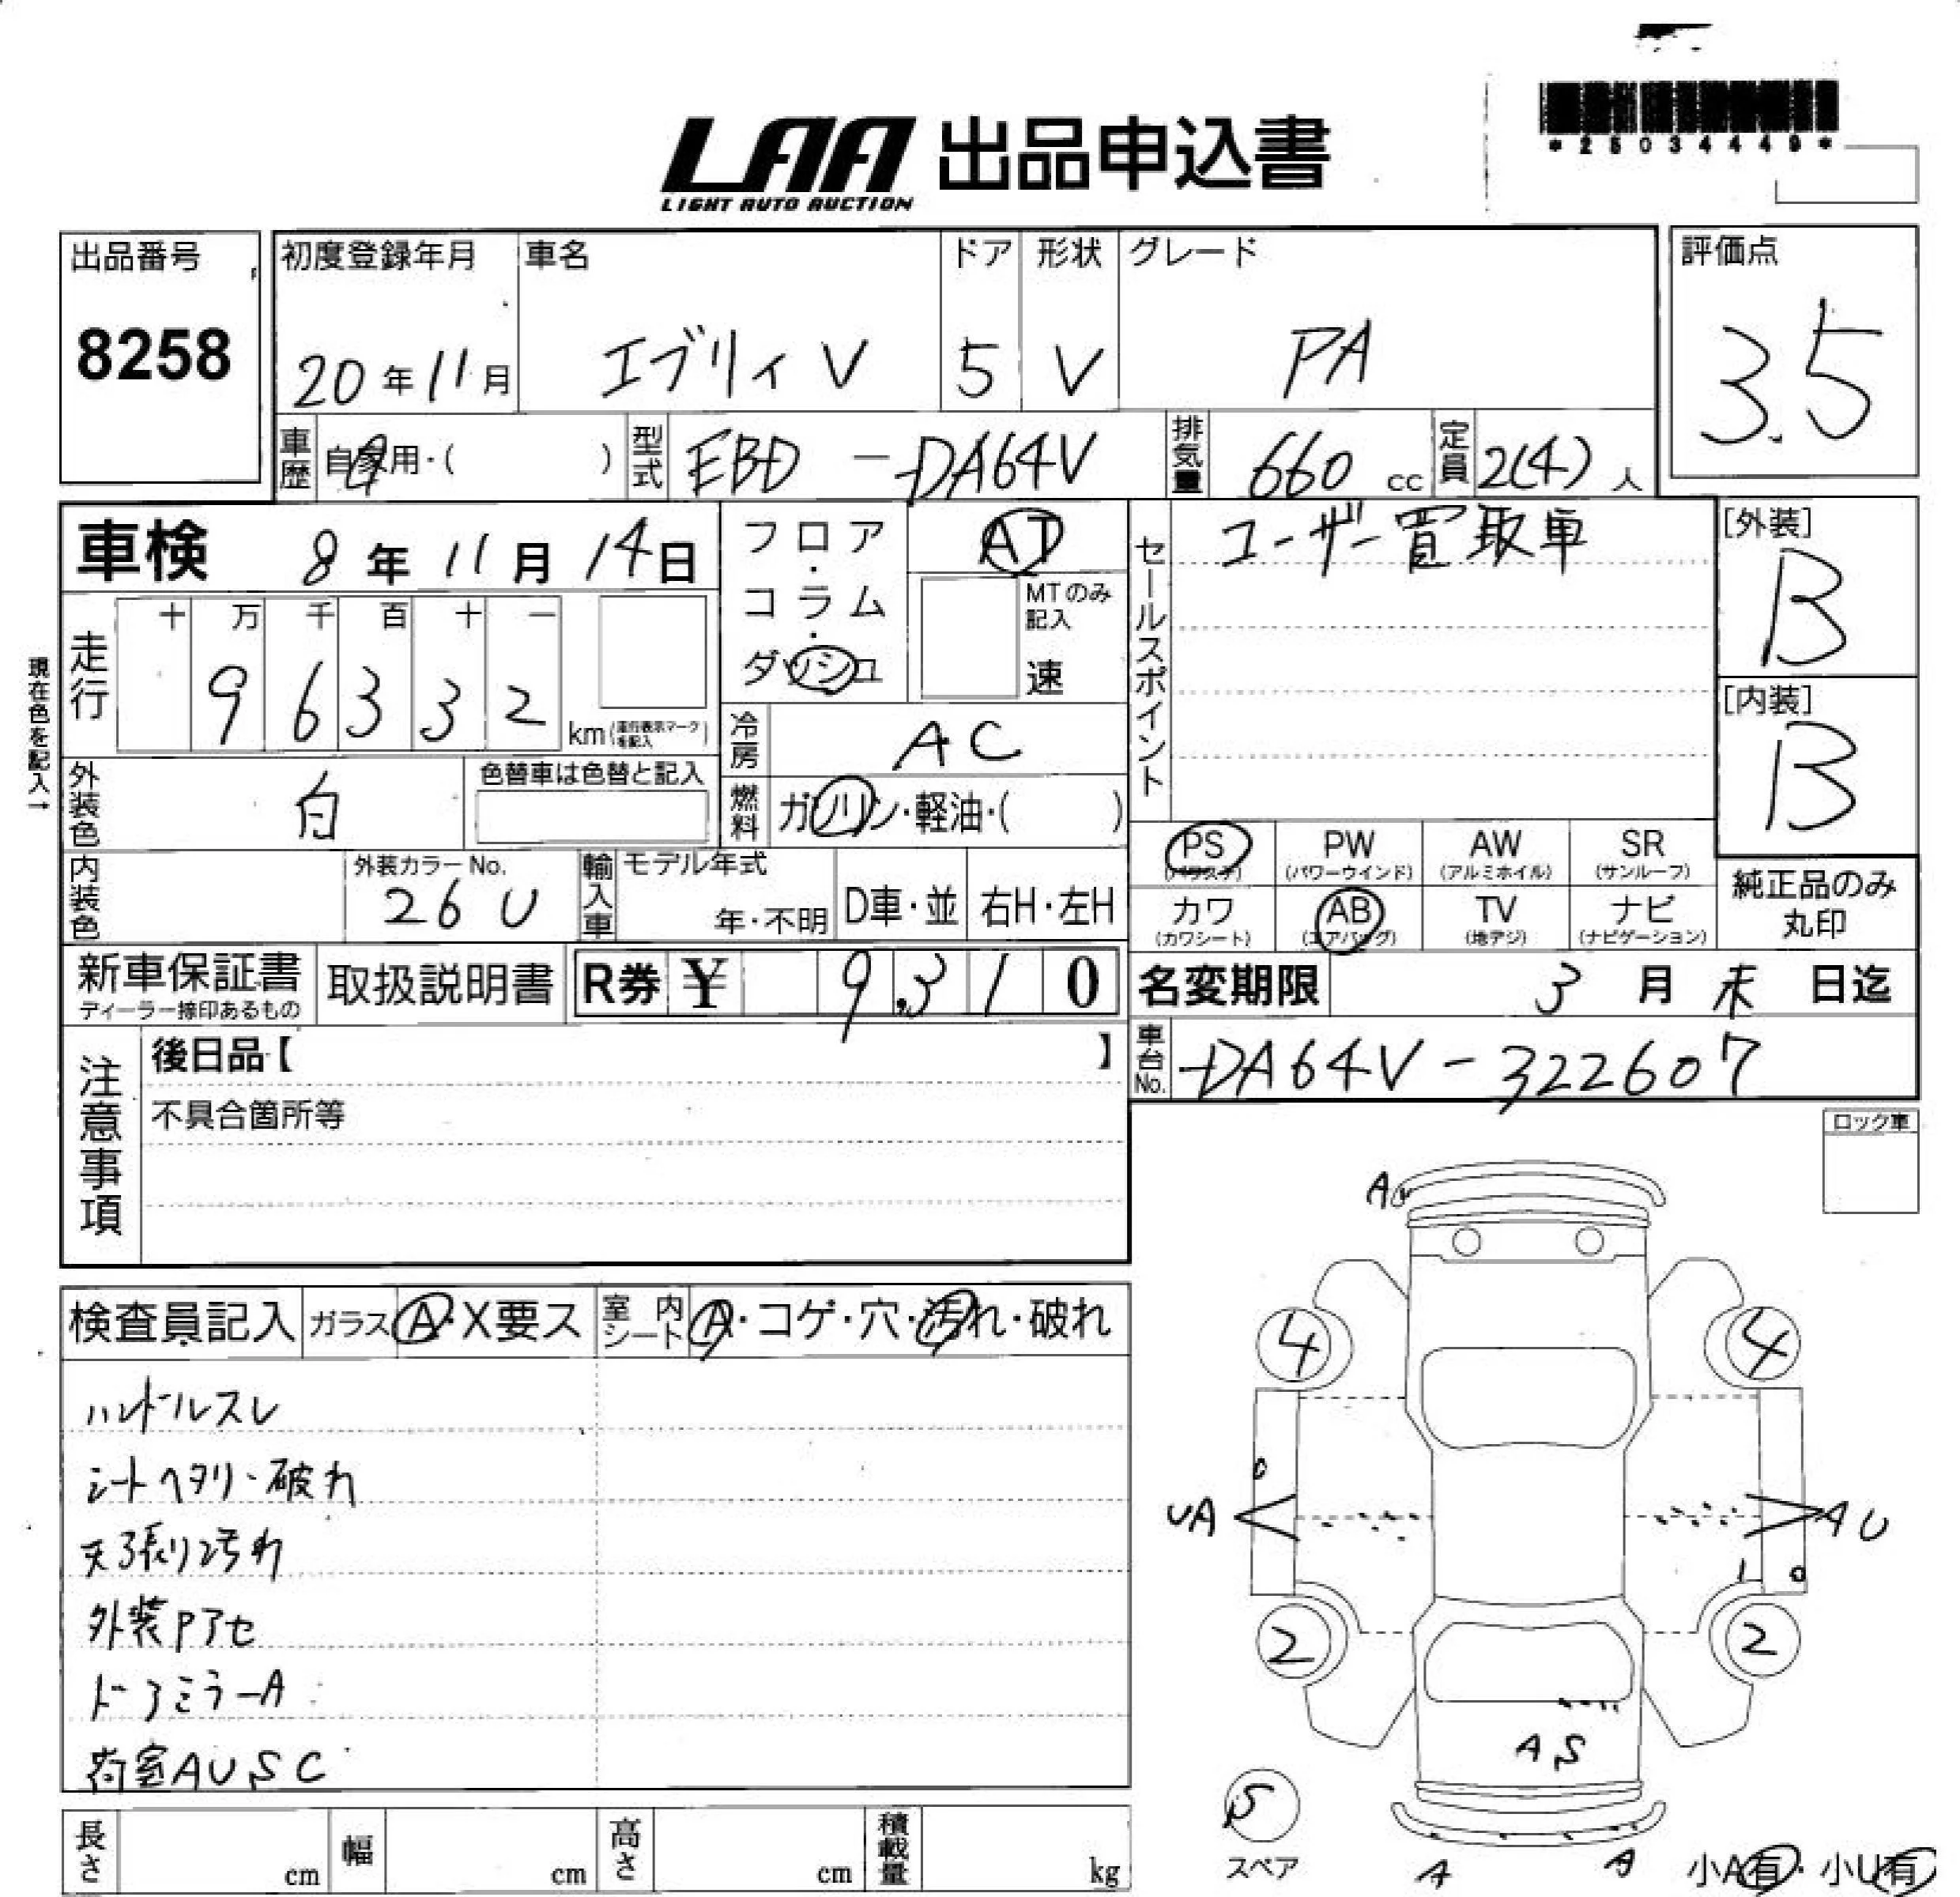 LAA 出品申込書
LIGHT AUTO AUCTION
*25034449*
出品番号
8258
初度登録年月
20年11月
車名
エブリィV
ドア
5
形状
V
グレード
PA
評価点
3.5
車歴
自家用・( )
型式
EBD-DA64V
排気量
660 cc
定員
2(4)人
車検 8年11月14日
フロア・コラム・ダッシュ
AT
MTのみ記入
速
セールスポイント
ユーザー買取車
[外装]
B
[内装]
B
現在色を記入→
走行
十 万 千 百 十 一
96332
km(走行表示マークを記入)
冷房
AC
燃料
ガソリン・軽油・( )
外装色
白
色替車は色替と記入
内装色
外装カラーNo.
26U
輸入車
モデル年式
年・不明
D車・並
右H・左H
PS
(パワステ)
PW
(パワーウインド)
AW
(アルミホイル)
SR
(サンルーフ)
カワ
(カワシート)
AB
(エアバッグ)
TV
(地デジ)
ナビ
(ナビゲーション)
純正品のみ
丸印
新車保証書
ディーラー捺印あるもの
取扱説明書
R券 ¥ 9,310
名変期限 3月末日迄
車台No.
DA64V-322607
注意事項
後日品【 】
不具合箇所等
ロック車
検査員記入
ガラス
A・X要ス
室内シート
A・コゲ・穴・汚れ・破れ
ハンドルスレ
シートヘタリ・破れ
天張り汚れ
外装Pアセ
ドアミラーA
荷室AUSC
A
4
4
UA
AU
2
2
AS
S
スペア
A
A
小A有・小U有
長さ cm
幅 cm
高さ cm
積載量 kg